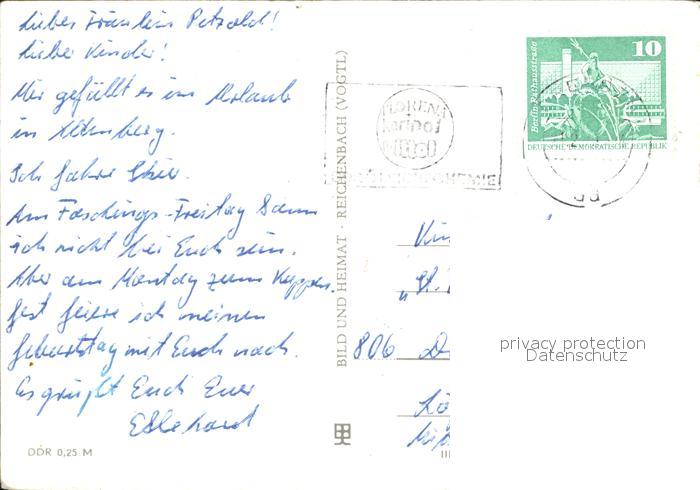 Liebes Fräulein Petzold!
Liebe Kinder!
Mir gefällt es im Urlaub
in Altenberg.
Ich fahre Skier.
Am Faschings-Freitag kann
ich nicht bei Euch sein.
Aber am Montag zum Kappen
fest feiere ich meinen
Geburtstag mit Euch nach.
Es grüßt Euch Euer
Ekkehard
DDR 0,25 M
BILD UND HEIMAT · REICHENBACH (VOGTL)
FLORENA
Berlin-Rathausstraße
10
DEUTSCHE DEMOKRATISCHE REPUBLIK
Kin
806 D
privacy protection
Datenschutz
Kö
III